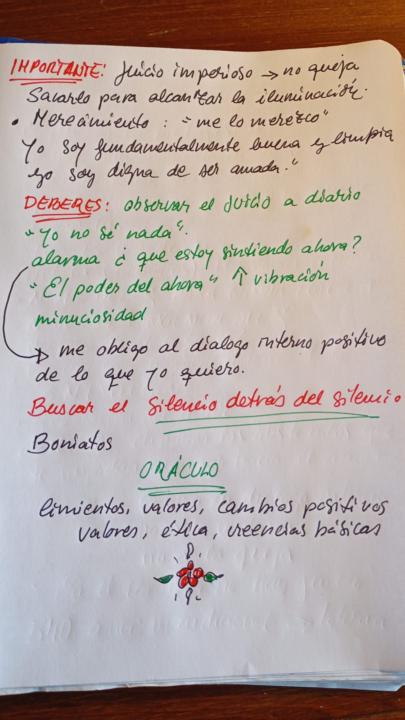 IMPORTANTE: Juicio imperioso → no queja
Sacarlo para alcanzar la iluminación.
• Merecimiento: "me lo merezco"
Yo soy fundamentalmente buena y limpia
yo soy digna de ser amada."
DEBERES: observar el juicio a diario
"Yo no sé nada".
alarma ¿que estoy sintiendo ahora?
"El poder del ahora" ↑ vibración
minuciosidad
→ me obligo al dialogo interno positivo
de lo que yo quiero.
Buscar el silencio detrás del silencio
Boniatos
ORÁCULO
limientos, valores, cambios positivos
valores, ética, creencias básicas